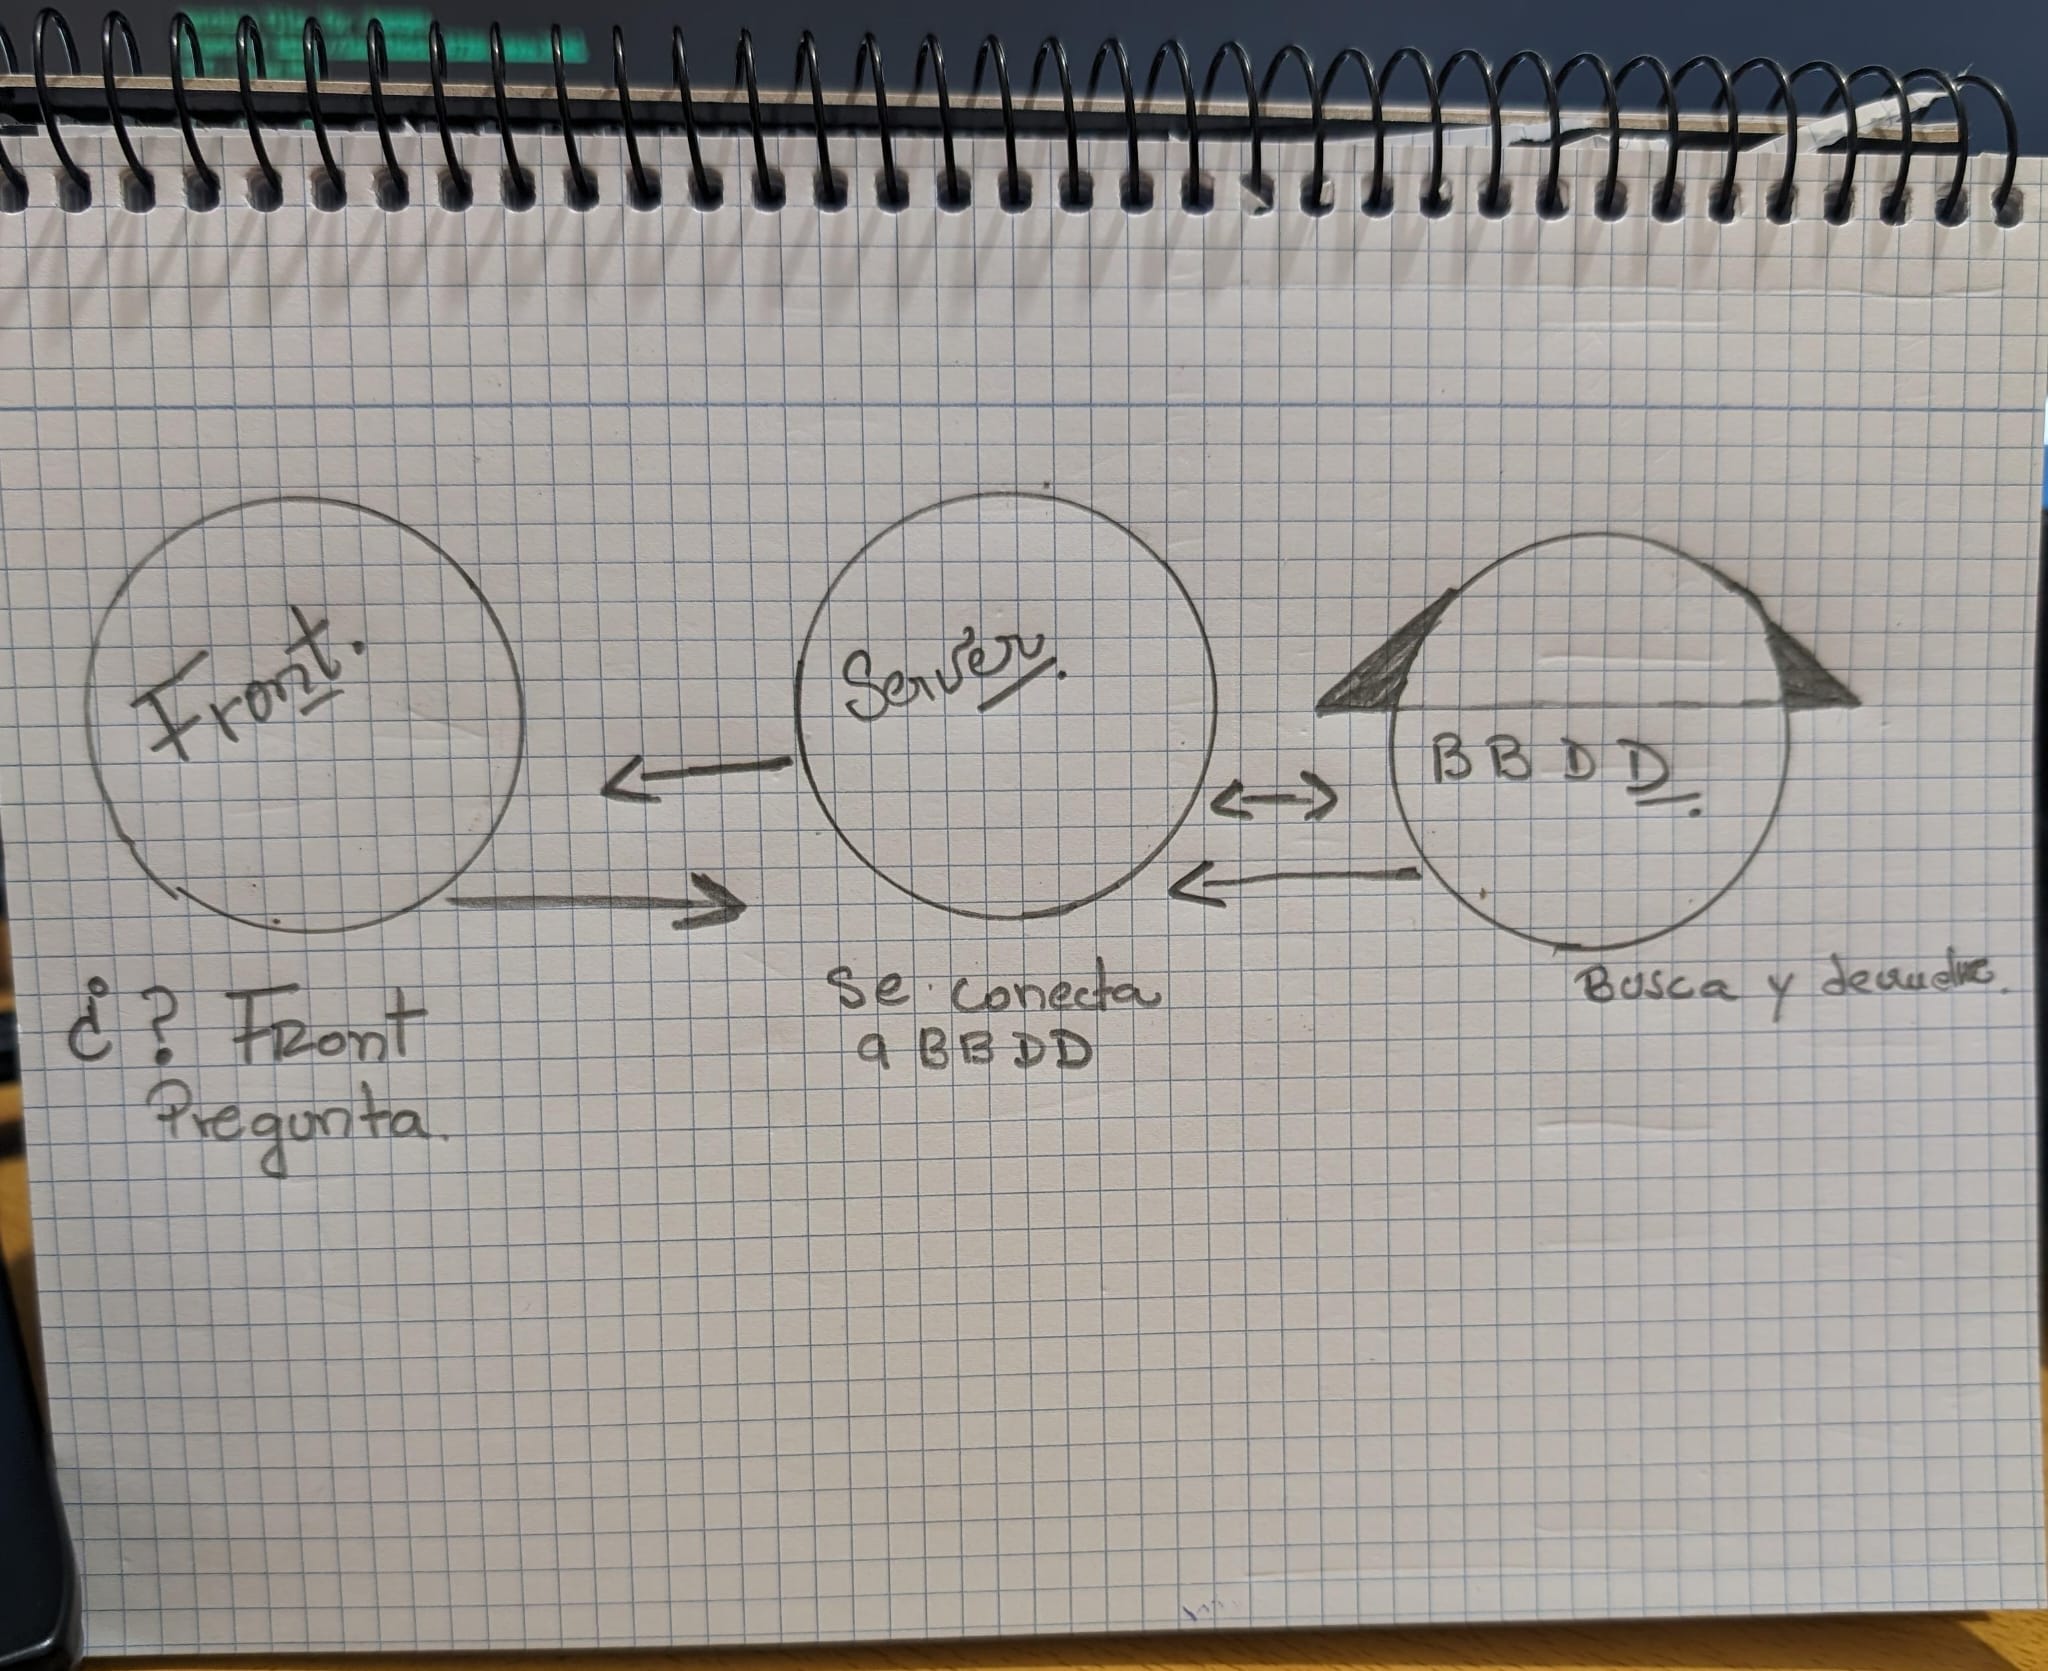 Front.
Server.
BBDD.
¿? Front
Pregunta.
Se conecta
a BBDD
Busca y devuelve.